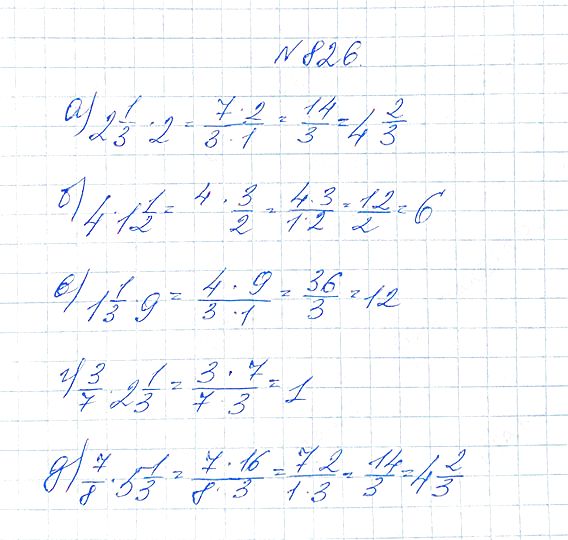 № 826.
а) 2 1/3 · 2 = 7 · 2/3 · 1 = 14/3 = 4 2/3
б) 4 · 1 1/2 = 4 · 3/2 = 4 · 3/1 · 2 = 12/2 = 6
в) 1 1/3 · 9 = 4 · 9/3 · 1 = 36/3 = 12
г) 3/7 · 2 1/3 = 3 · 7/7 · 3 = 1
д) 7/8 · 5 1/3 = 7 · 16/8 · 3 = 7 2/1 · 3 = 14/3 = 4 2/3